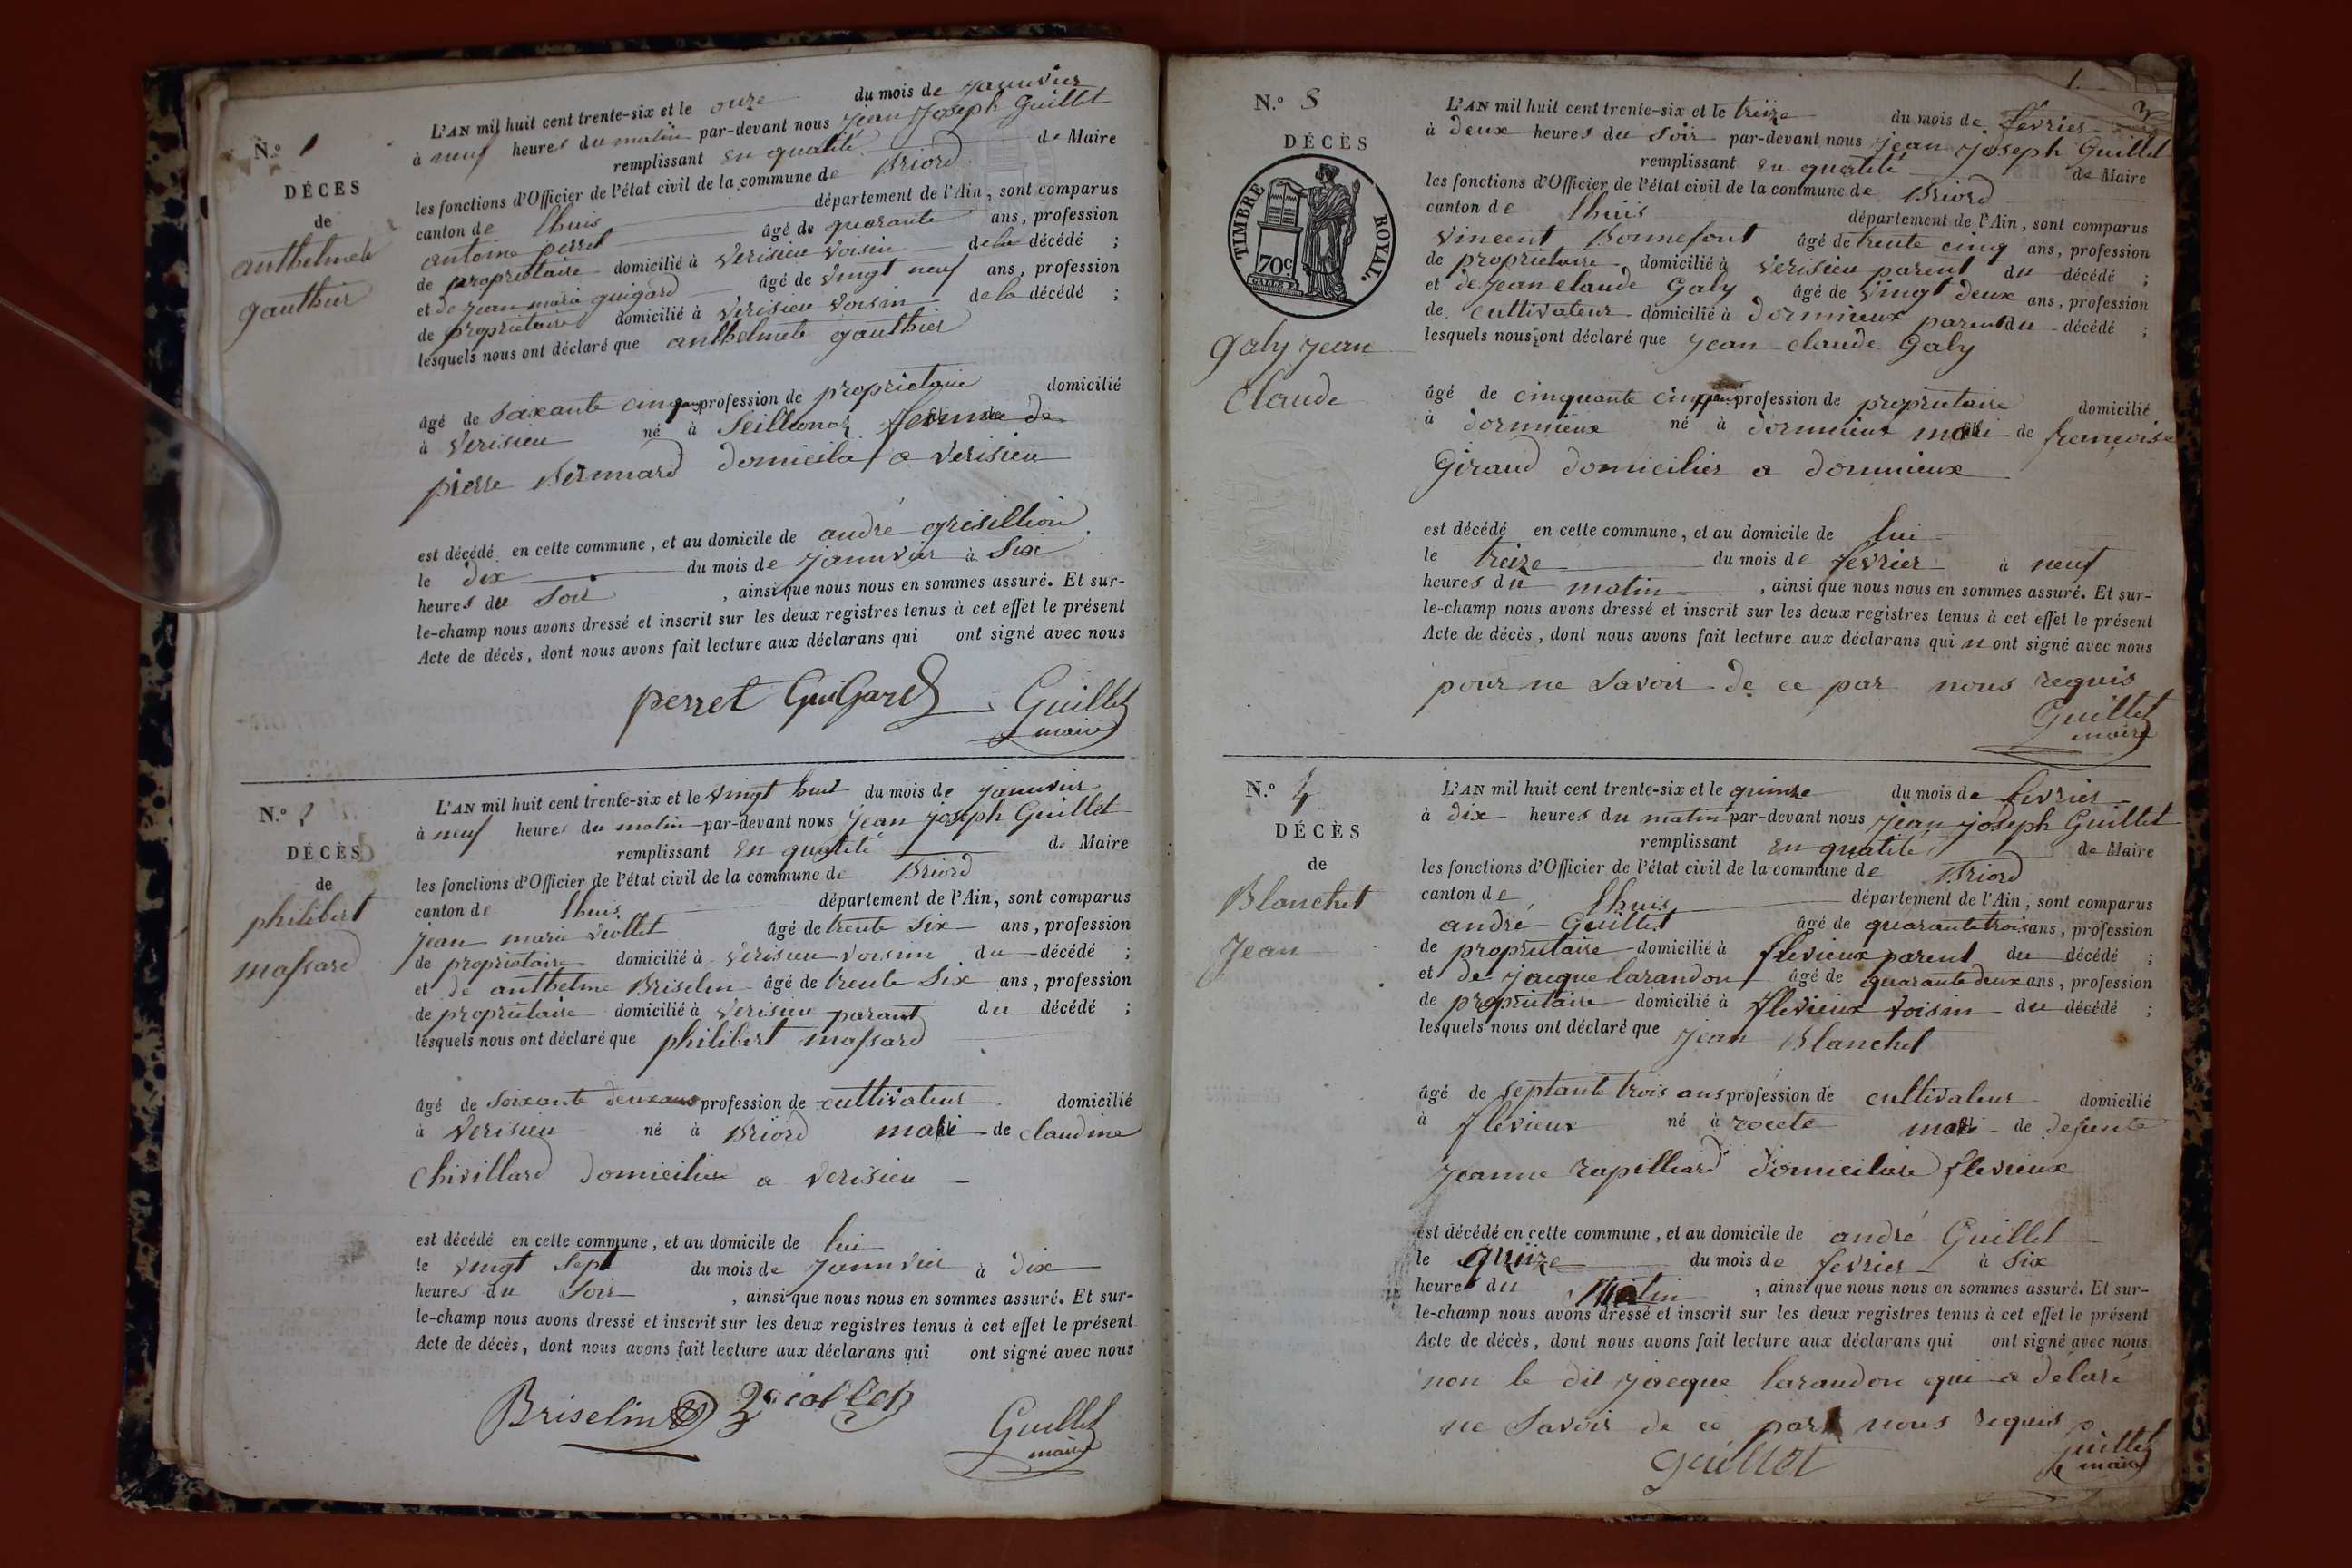 N.º 1
DÉCES
de
anthelmete
gauthier
L'AN mil huit cent trente-six et le onze du mois de jannvier
à neuf heures du matin par-devant nous jean joseph Guillet
remplissant en qualité de Maire
les fonctions d'Officier de l'état civil de la commune de Briord
canton de lhuis département de l'Ain, sont comparus
antoine perret âgé de quarante ans, profession
de propriétaire domicilié à Verisieu Voisin de la décédé ;
et de jean marie guigard âgé de vingt neuf ans, profession
de propriétaire domicilié à Verisieu Voisin de la décédé ;
lesquels nous ont déclaré que anthelmete gauthier
âgé de Soixante cinq ans profession de propriétaire domicilié
à Verisieu né à Seillonaz femme de
pierre Bernnard domicilié a Verisieu
est décédé en cette commune, et au domicile de andré grisillion
le dix du mois de jannvier à Six
heures du Soir, ainsi que nous nous en sommes assuré. Et sur-
le-champ nous avons dressé et inscrit sur les deux registres tenus à cet effet le présent
Acte de décès, dont nous avons fait lecture aux déclarans qui ont signé avec nous
perret GuiGard Guillet
maire
N.º 2
DÉCÈS
de
philibert
massard
L'AN mil huit cent trente-six et le vingt huit du mois de jannvier
à neuf heures du matin par-devant nous jean joseph Guillet
remplissant En qualité de Maire
les fonctions d'Officier de l'état civil de la commune de Briord
canton de lhuis département de l'Ain, sont comparus
jean marie Viollet âgé de trente Six ans, profession
de propriétaire domicilié à Verisieu voisin du décédé ;
et de anthelme Briselin âgé de trente Six ans, profession
de propriétaire domicilié à Verisieu parant du décédé ;
lesquels nous ont déclaré que philibert massard
âgé de Soixante deux ans profession de cultivateur domicilié
à Verisieu né à Briord mari de claudine
Chivillard domicilié a Verisieu
est décédé en cette commune, et au domicile de lui
le vingt Sept du mois de janvier à dix
heures du Soir, ainsi que nous nous en sommes assuré. Et sur-
le-champ nous avons dressé et inscrit sur les deux registres tenus à cet effet le présent
Acte de décès, dont nous avons fait lecture aux déclarans qui ont signé avec nous
Briselin Viollet Guillet
maire
N.º 3
DÉCÈS
TIMBRE ROYAL.
70c
galy jean
Claude
L'AN mil huit cent trente-six et le treize du mois de février
à deux heures du Soir par-devant nous jean joseph Guillet
remplissant en qualité de Maire
les fonctions d'Officier de l'état civil de la commune de Briord
canton de lhuis département de l'Ain, sont comparus
Vincent Bonnefont âgé de trente cinq ans, profession
de propriétaire domicilié à Verisieu parent du décédé ;
et de jean claude Galy âgé de Vingt deux ans, profession
de cultivateur domicilié à dornnieux parent du décédé ;
lesquels nous ont déclaré que jean claude Galy
âgé de cinquante cinq ans profession de propriétaire domicilié
à dornnieux né à dornnieux mari de françoise
Giraud domicilier a dornnieux
est décédé en cette commune, et au domicile de lui
le treize du mois de février à neuf
heures du matin, ainsi que nous nous en sommes assuré. Et sur-
le-champ nous avons dressé et inscrit sur les deux registres tenus à cet effet le présent
Acte de décès, dont nous avons fait lecture aux déclarans qui n ont signé avec nous
pour ne Savoir de ce par nous requis
Guillet
maire
N.º 4
DÉCÈS
de
Blanchet
jean
L'AN mil huit cent trente-six et le quinze du mois de fevrier
à dix heures du matin par-devant nous jean joseph Guillet
remplissant en qualité de Maire
les fonctions d'Officier de l'état civil de la commune de Briord
canton de lhuis département de l'Ain, sont comparus
andré Guillet âgé de quarante trois ans, profession
de propriétaire domicilié à flevieux parent du décédé ;
et de jacque larandon âgé de quarante deux ans, profession
de propriétaire domicilié à flevieux voisin du décédé ;
lesquels nous ont déclaré que jean Blanchet
âgé de septante trois ans profession de cultivateur domicilié
à flevieux né à mari de defunte
jeanne rapilliard flevieux
est décédé en cette commune, et au domicile de andré Guillet
le quinze du mois de fevrier à Six
heures du Matin, ainsi que nous nous en sommes assuré. Et sur-
le-champ nous avons dressé et inscrit sur les deux registres tenus à cet effet le présent
Acte de décès, dont nous avons fait lecture aux déclarans qui ont signé avec nous
non le dit jacque larandon qui a délaré
ne Savoir de ce par nous requis
guillet Guillet
maire